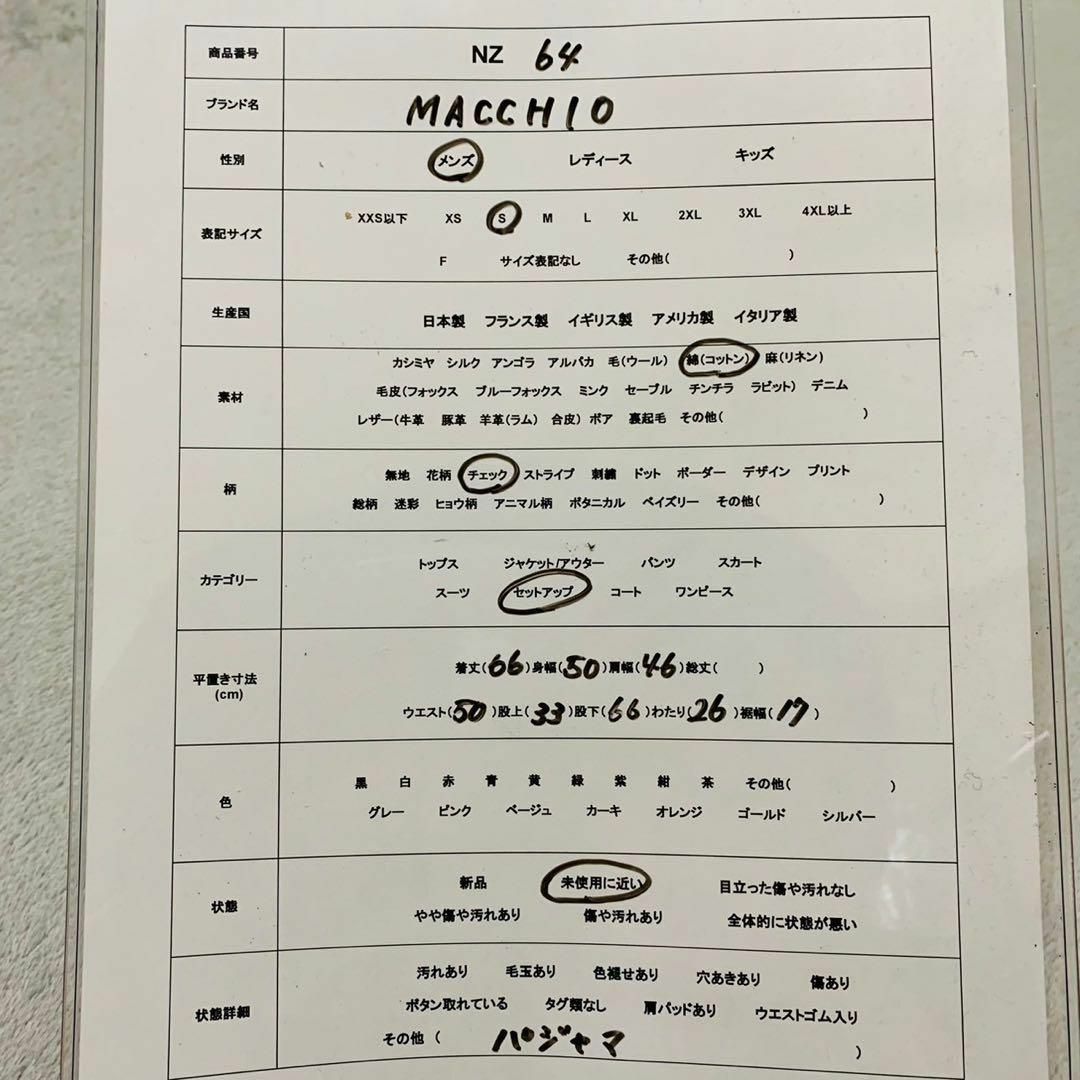 商品番号 NZ 64
ブランド名 MACCHIO
性別 メンズ レディース キッズ
表記サイズ
XXS以下 XS S M L XL 2XL 3XL 4XL以上
F サイズ表記なし その他( )
生産国 日本製 フランス製 イギリス製 アメリカ製 イタリア製
素材
カシミヤ シルク アンゴラ アルパカ 毛(ウール) 綿(コットン) 麻(リネン)
毛皮(フォックス ブルーフォックス ミンク セーブル チンチラ ラビット) デニム
レザー(牛革 豚革 羊革(ラム) 合皮) ボア 裏起毛 その他( )
柄
無地 花柄 チェック ストライプ 刺繍 ドット ボーダー デザイン プリント
総柄 迷彩 ヒョウ柄 アニマル柄 ボタニカル ペイズリー その他( )
カテゴリー
トップス ジャケット/アウター パンツ スカート
スーツ セットアップ コート ワンピース
平置き寸法
(cm)
着丈(66)身幅(50)肩幅(46)総丈( )
ウエスト(50)股上(33)股下(66)わたり(26)裾幅(17)
色
黒 白 赤 青 黄 緑 紫 紺 茶 その他( )
グレー ピンク ベージュ カーキ オレンジ ゴールド シルバー
状態
新品 未使用に近い 目立った傷や汚れなし
やや傷や汚れあり 傷や汚れあり 全体的に状態が悪い
状態詳細
汚れあり 毛玉あり 色褪せあり 穴あきあり 傷あり
ボタン取れている タグ類なし 肩パッドあり ウエストゴム入り
その他 ( パジャマ )